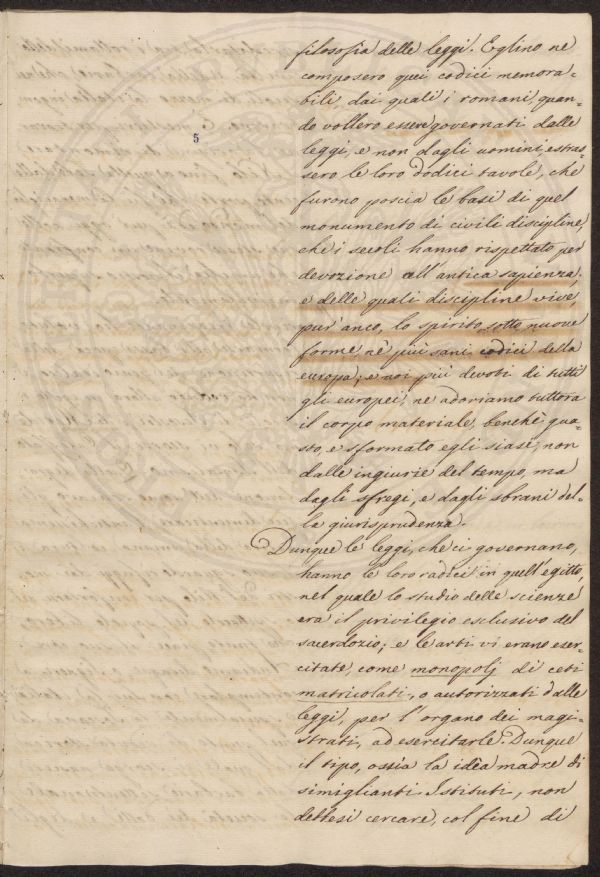 5
filosofia delle leggi. Eglino ne
composero quei codici memora=
bili, dai quali i romani, quan=
do vollero essere governati dalle
leggi, e non dagli uomini, estras=
sero le loro dodici tavole, che
furono poscia le basi di quel
monumento di civili discipline,
che i secoli hanno rispettato per
devozione all'antica sapienza;
e delle quali discipline vive,
pur'anco, lo spirito sotto nuove
forme né più sani codici della
europa; e noi più devoti di tutti
gli europei, ne adoriamo tuttora
il corpo materiale, benchè gua=
sto, e sformato egli siasi, non
dalle ingiurie del tempo, ma
dagli sfregi, e dagli sbrani del=
la giurisprudenza.
Dunque le leggi, che ci governano,
hanno le loro radici in quell'egitto,
nel quale lo studio delle scienze
era il privilegio esclusivo del
sacerdozio; e le arti vi erano eser=
citate, come monopolj di ceti
matricolati, o autorizzati dalle
leggi, per l'organo dei magi=
strati, ad esercitarle. Dunque
il tipo, ossia la idèa madre di
simiglianti Istituti, non
dettesi cercare, col fine di